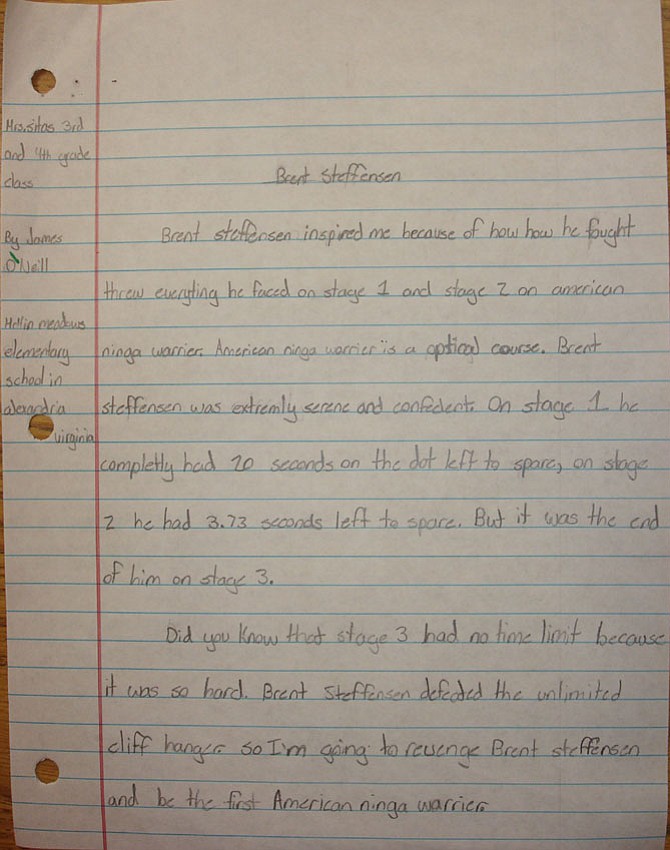 Mrs.sitas 3rd
and 4th grade
class
By James
O'Neill
Hollin meadows
elementary
school in
alexandria
virginia
Brent Steffensen
Brent steffensen inspired me because of how how he fought
threw everyting he faced on stage 1 and stage 2 on american
ninga warrier. American ninga warrier is a optical course. Brent
steffensen was extremly serene and confedent. On stage 1 he
completly had 20 seconds on the dot left to spare, on stage
2 he had 3.73 seconds left to spare. But it was the end
of him on stage 3.
Did you know that stage 3 had no time limit because
it was so hard. Brent Steffensen defeded the unlimited
cliff hanger. so I'm going to revenge Brent steffensen
and be the first American ninga warrier.